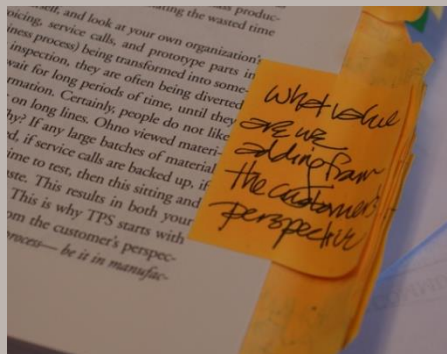 s produc-
ating the wasted time
elf, and look at your own organization's
oicing, service calls, and prototype parts in
iness process) being transformed into some-
inspection, they are often being diverted
wait for long periods of time, until they
rmation. Certainly, people do not like
on long lines, Ohno viewed materi-
hy? If any large batches of material
d, if service calls are backed up, if
ime to test, then this sitting and
aste. This results in both your
This is why TPS starts with
om the customer's perspec-
process—be it in manufac-
What value
are we
adding from
the customer's
perspective